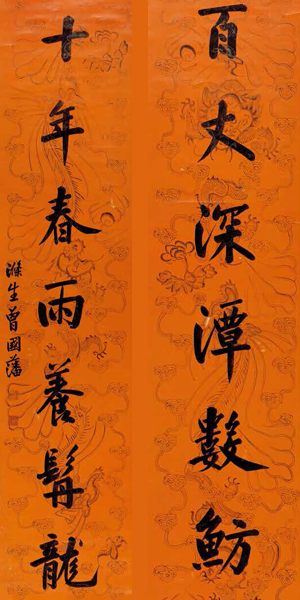 百丈深潭數魴
十年春雨養髯龍
滌生曾國藩